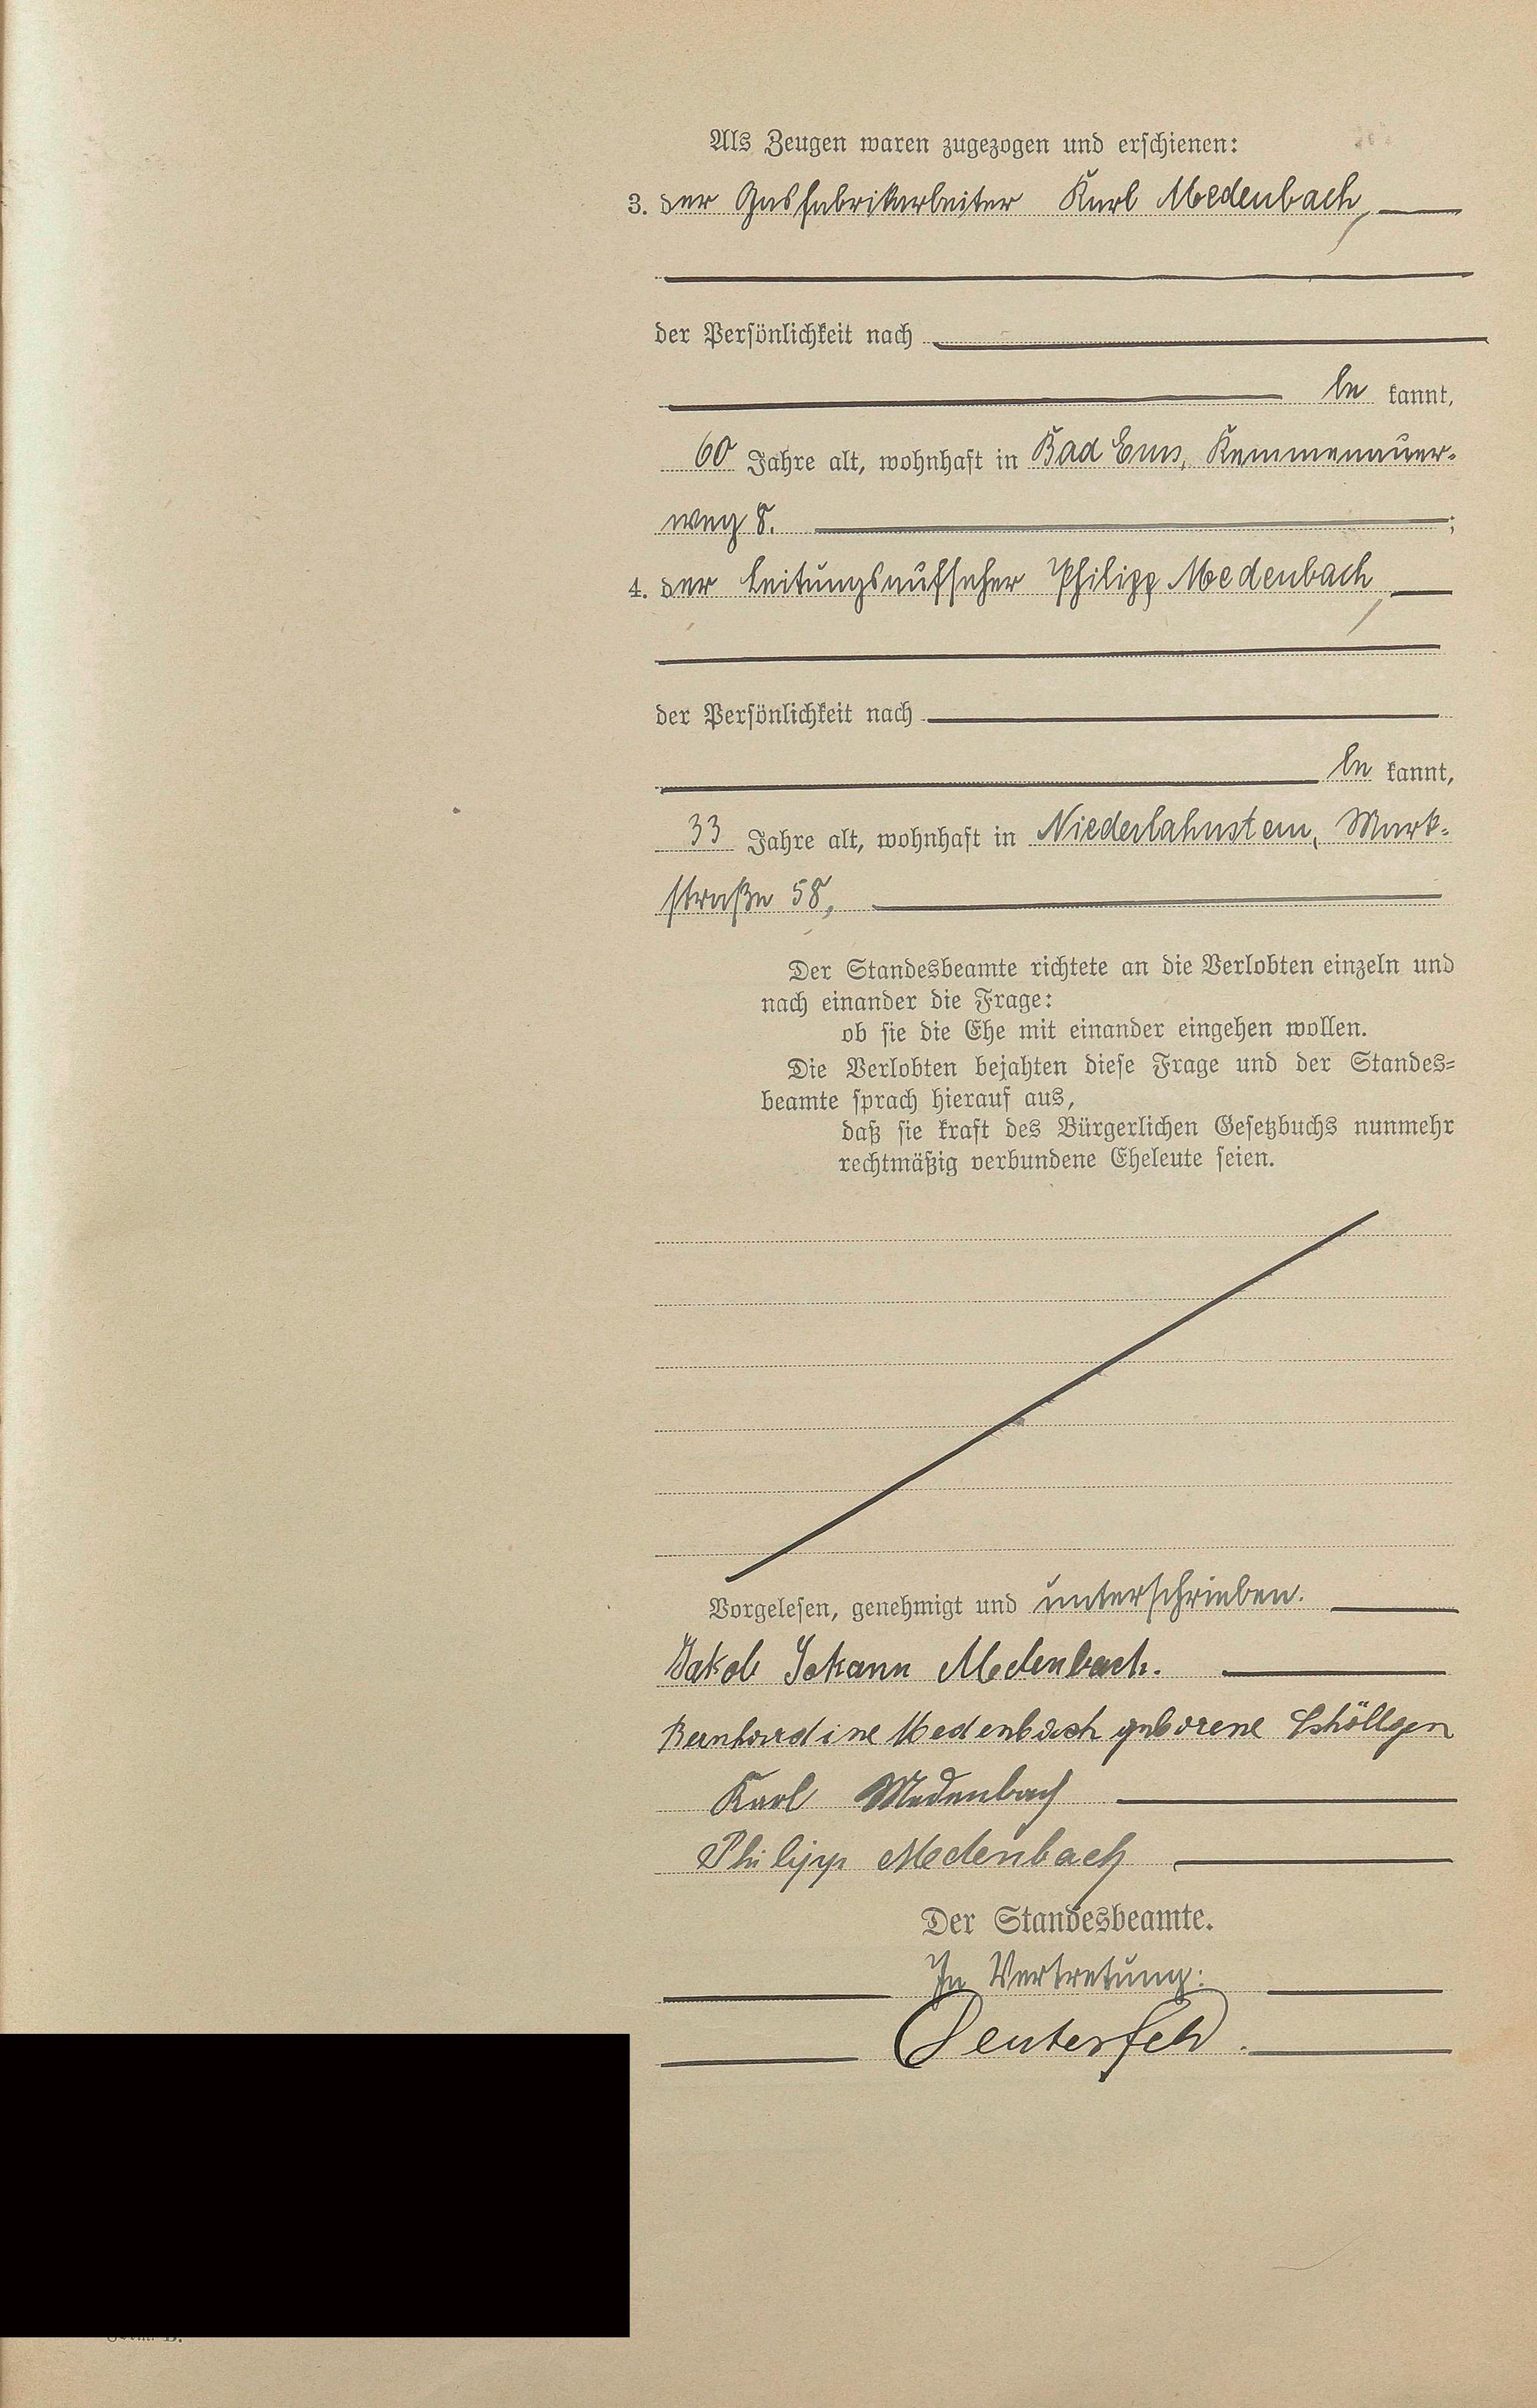 Als Zeugen waren zugezogen und erschienen:
3. der Gasfabrikarbeiter Karl Medenbach,
der Persönlichkeit nach
be kannt,
60 Jahre alt, wohnhaft in Bad Ems, Kemmenauer-
weg 8. ;
4. der Leitungsaufseher Philipp Medenbach,
der Persönlichkeit nach
be kannt,
33 Jahre alt, wohnhaft in Niederlahnstein, Mark-
straße 58,
Der Standesbeamte richtete an die Verlobten einzeln und
nach einander die Frage:
ob sie die Ehe mit einander eingehen wollen.
Die Verlobten bejahten diese Frage und der Standes-
beamte sprach hierauf aus,
daß sie kraft des Bürgerlichen Gesetzbuchs nunmehr
rechtmäßig verbundene Eheleute seien.
Vorgelesen, genehmigt und unterschrieben.
Jakob Johann Medenbach.
Bernhardine Medenbach geborene Schöllgen
Karl Medenbach
Philipp Medenbach
Der Standesbeamte.
In Vertretung: